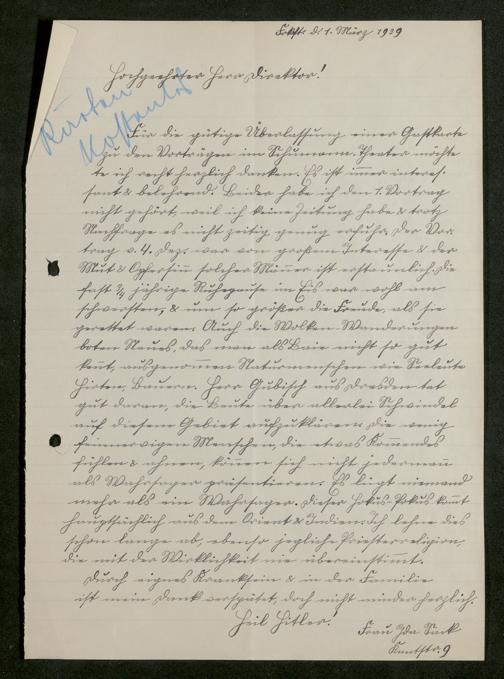 Ffm. d. 1. März 1939
Hochgeehrter Herr Direktor!
Karten
Kostenlos
Für die gütige Überlassung einer Gastkarte
zu den Vorträgen im Schumann Theater möchte
te ich recht herzlich danken. Es ist immer interes-
sant & belehrend. Leider habe ich den 1. Vortrag
nicht gehört, weil ich keine Zeitung habe & trotz
Nachfrage es nicht zeitig genug erfuhr. Der Vor
trag v. 4. Dez. war von großem Interesse & der
Mut & Opfersinn solcher Männer ist erstaunlich. Die
fast ¾ jährige Ruhepause im Eis war wohl am
schwersten, & um so größer die Freude, als sie
gerettet waren. Auch die Wolken Wanderungen
boten Neues, das man als Laie nicht so gut
kennt, ausgenommen Naturmenschen wie Seeleute
Hirten, Bauern. Herr Gubisch aus Dresden tat
gut daran, die Leute über allerlei Schwindel
auf diesem Gebiet aufzuklären. Die wenig
feinnervigen Menschen, die etwas Kommendes
fühlen & ahnen, können sich nicht jedermann
als Wahrsager präsentieren. Es lügt niemand
mehr als ein Wahrsager. Dieser Hokus-Pokus kommt
hauptsächlich aus dem Orient & Indien. Ich lehne dies
schon lange ab, ebenso jegliche Priesterreligion,
die mit der Wirklichkeit nie übereinstimmt.
Durch eignes Kranksein & in der Familie
ist mein Dank verspätet, doch nicht minder herzlich.
Heil Hitler!
Frau Ida Sack
Kantstr. 9